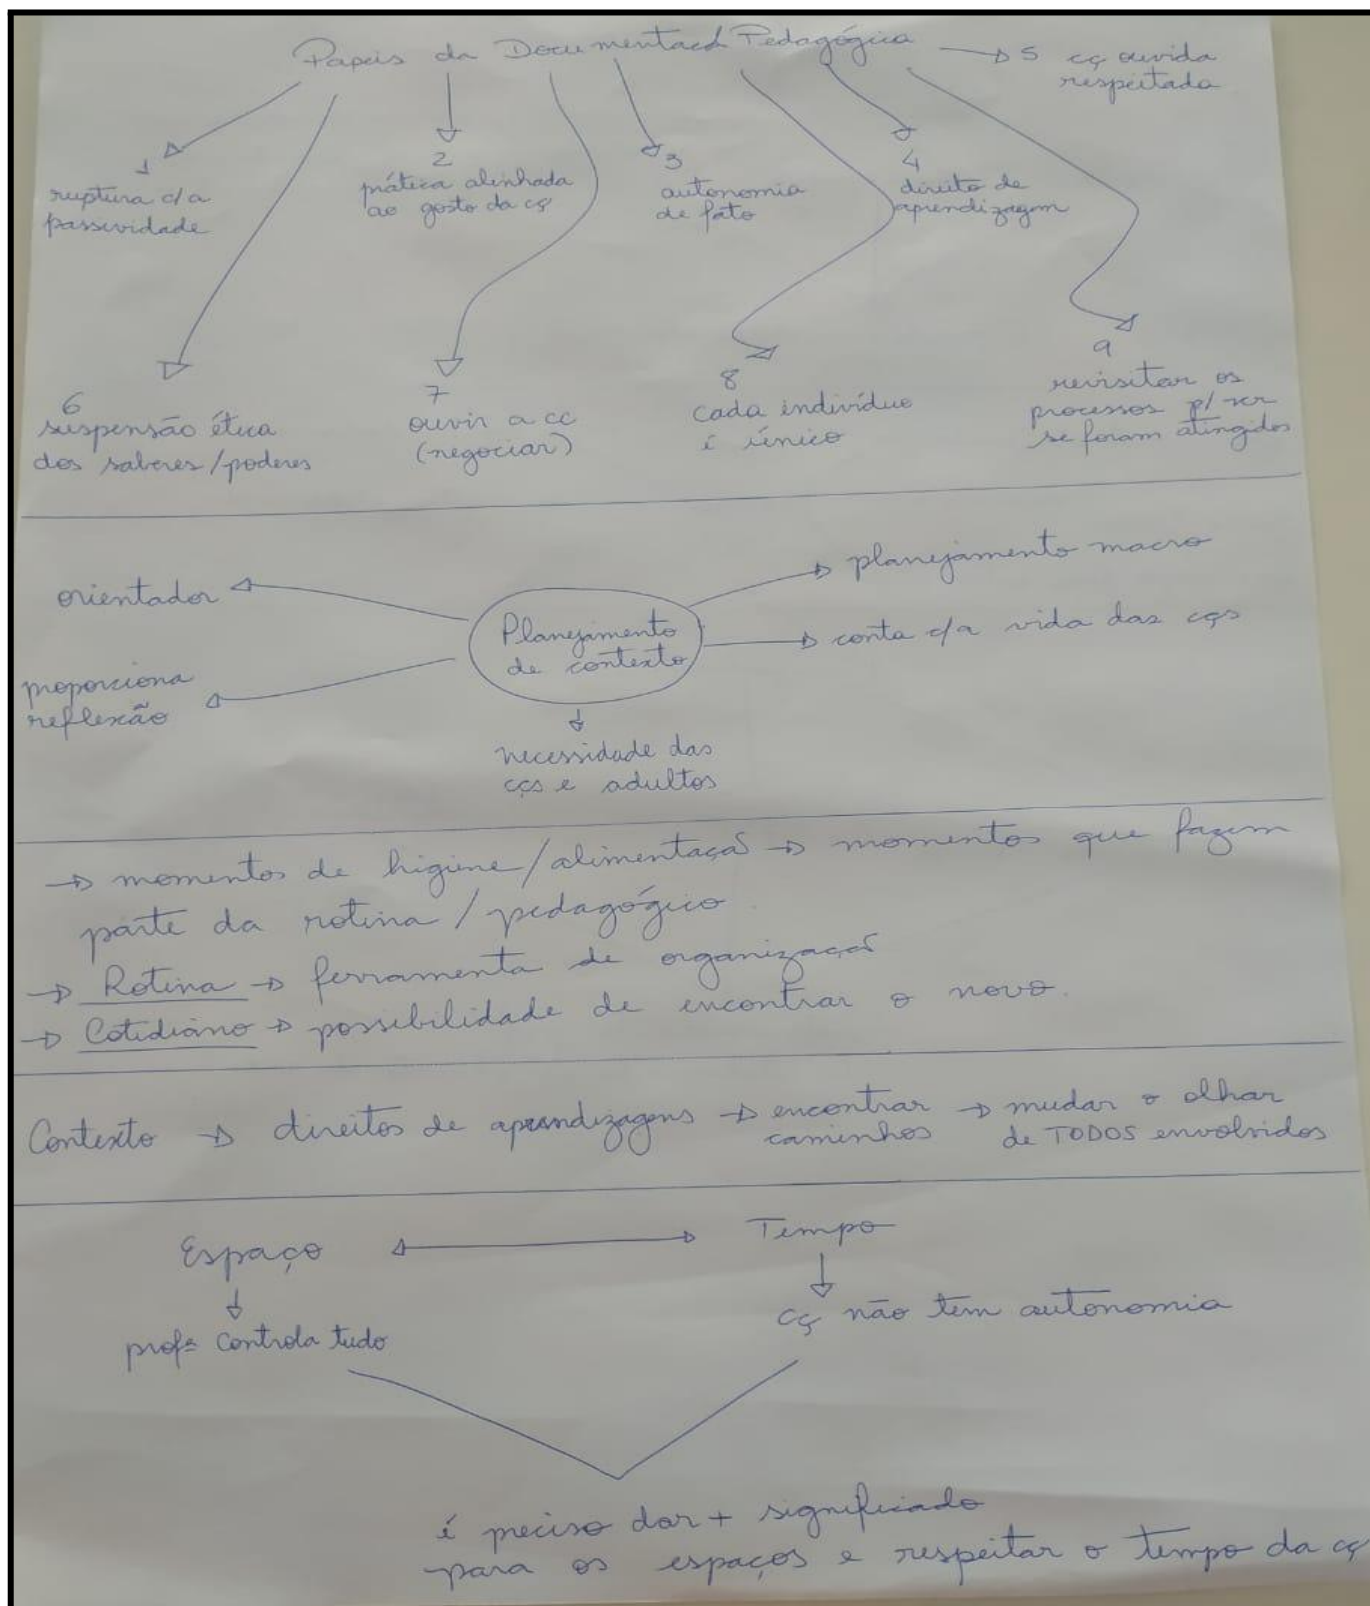 Papeis da Documentacã Pedagógica → 5 cç ouvida
respeitada
1
ruptura c/a
passividade
2
prática alinhada
ao gosto da cç
3
autonomia
de fato
4
direito de
aprendizagem
6
suspensão ética
dos saberes/poderes
7
ouvir a cc
(negociar)
8
cada indivíduo
é único
9
revisitar os
processos p/ ver
se foram atingidos
orientador
proporciona
reflexão
Planejamento
de contexto
planejamento macro
conta c/a vida das cçs
necessidade das
cçs e adultos
→ momentos de higiene/alimentaçã → momentos que fazem
parte da rotina / pedagógico.
→ Rotina → ferramenta de organizaçã
→ Cotidiano → possibilidade de encontrar o novo.
Contexto → direitos de aprendizagens → encontrar → mudar o olhar
caminhos de TODOS envolvidos
Espaço ↔ Tempo
profª controla tudo
cç não tem autonomia
é preciso dar + significado
para os espaços e respeitar o tempo da cç